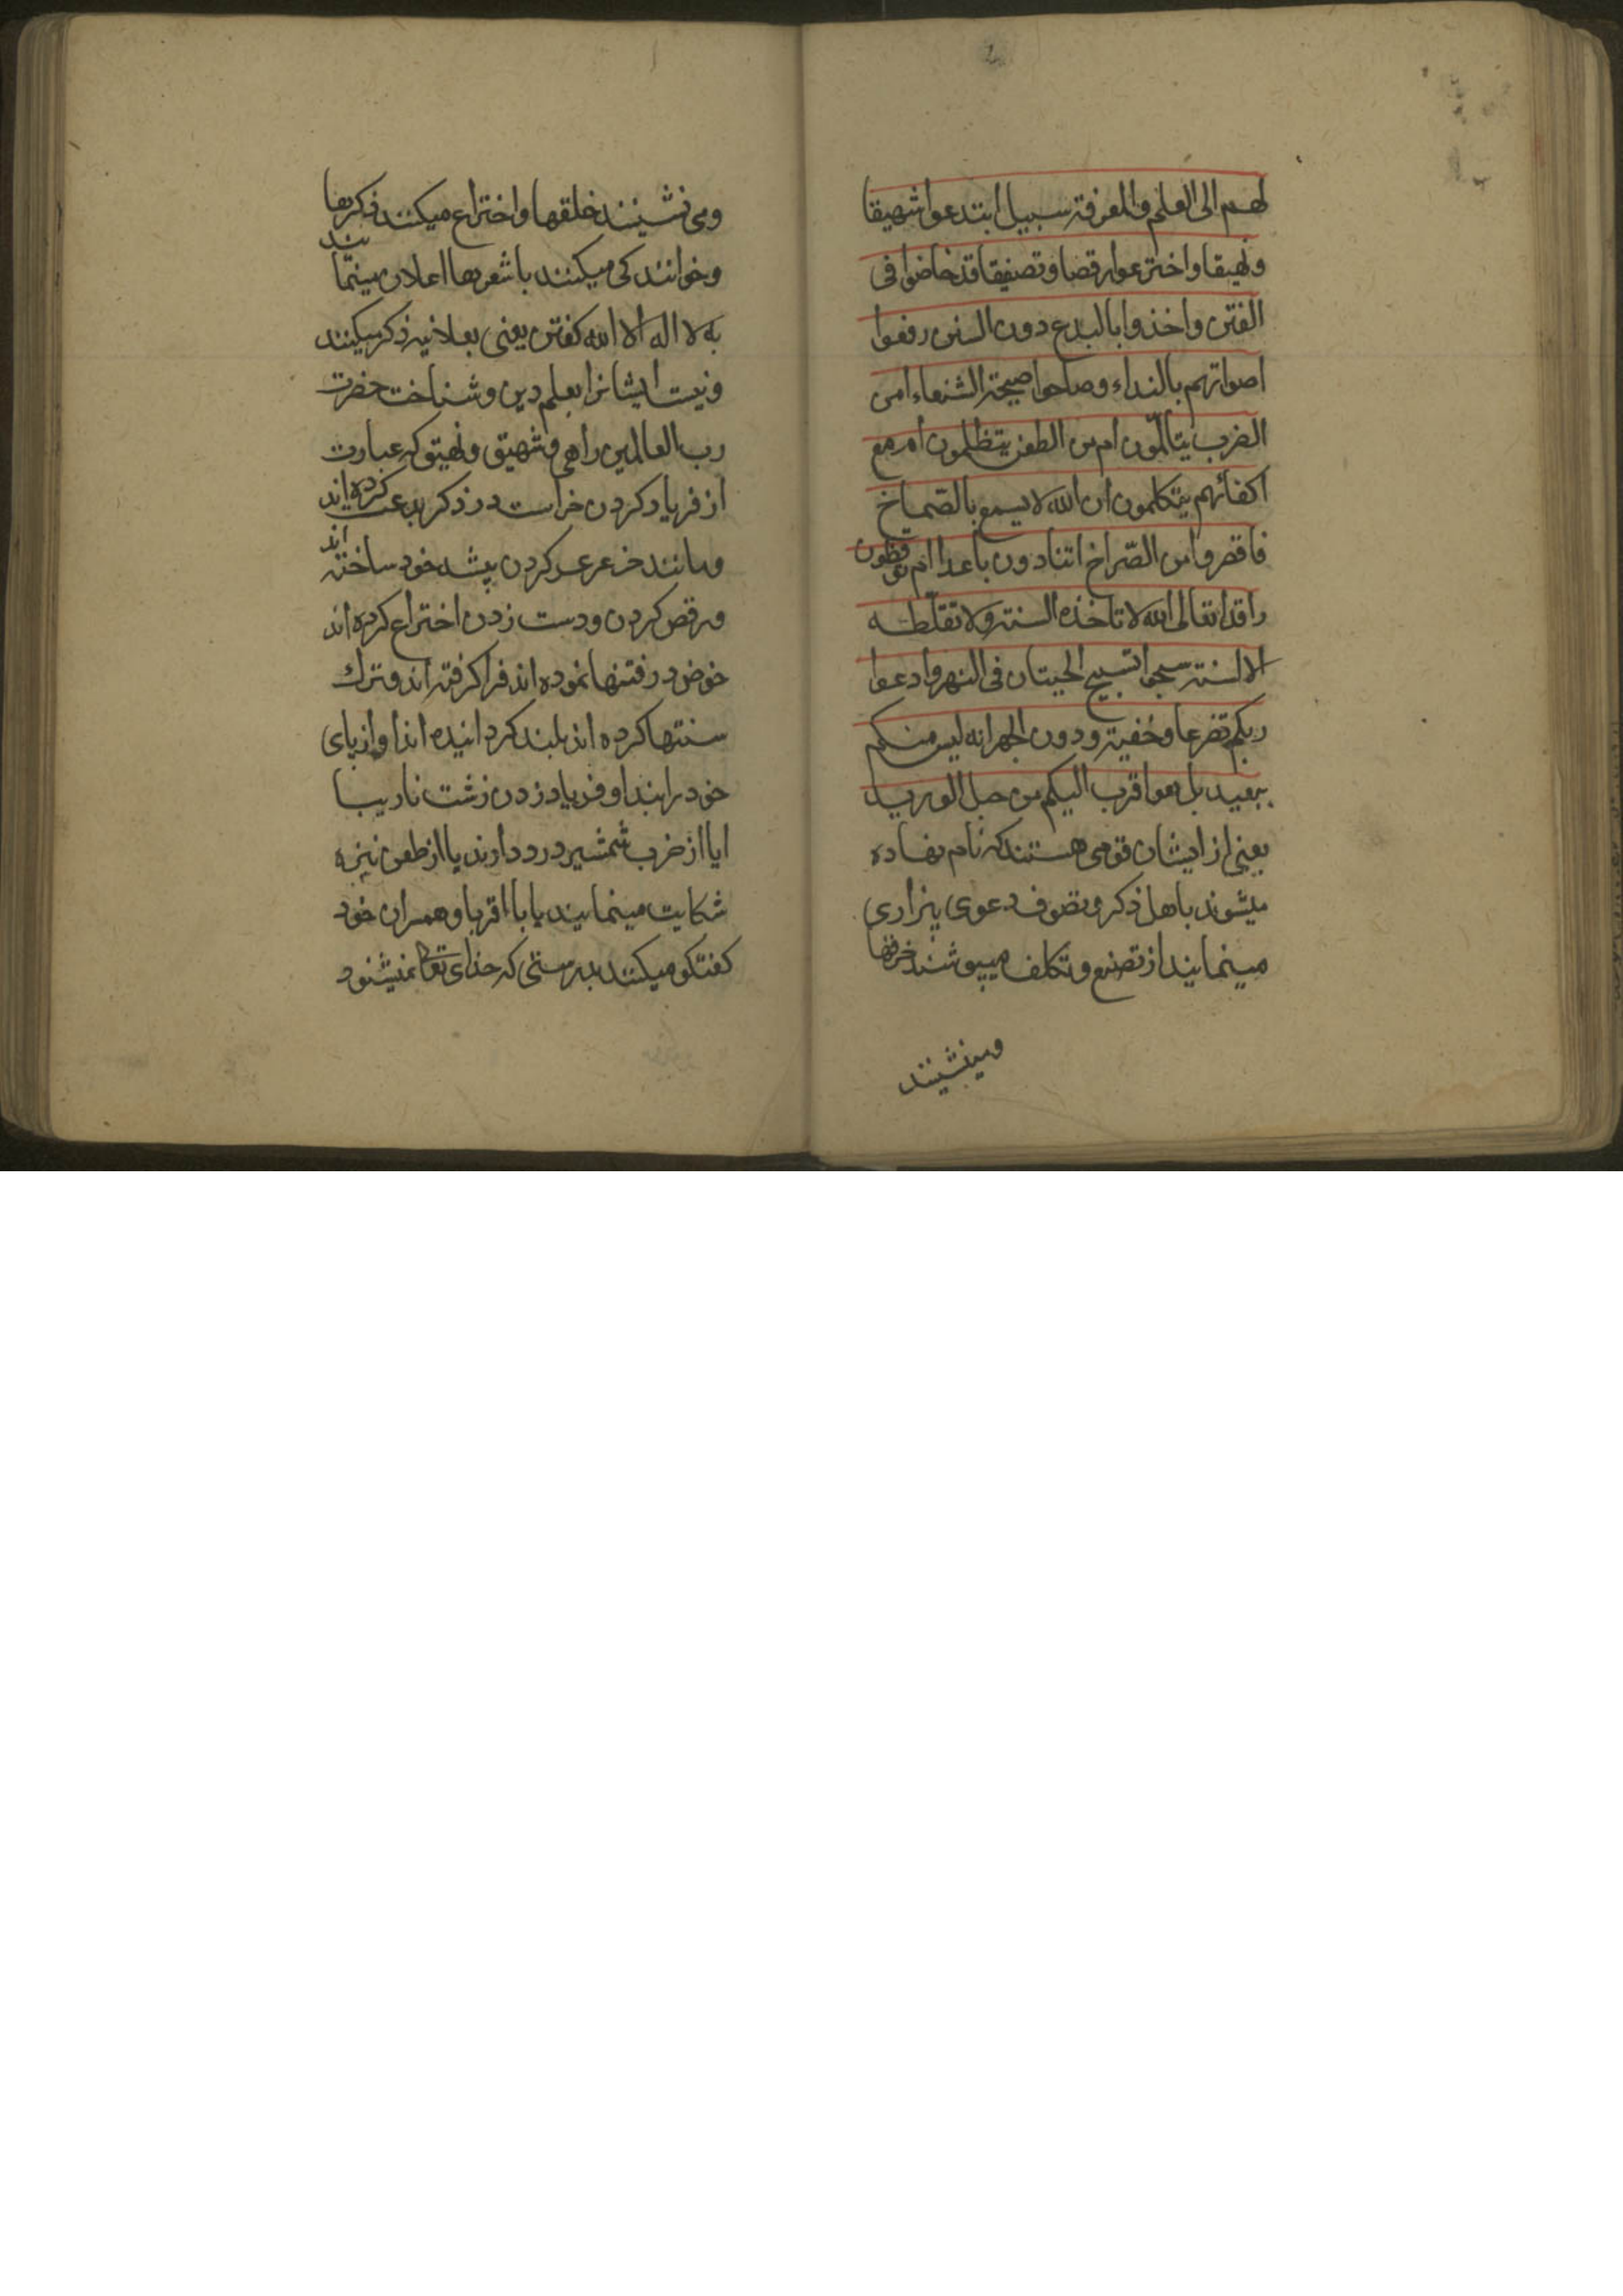 لهم الی العلم والمعرفة سبیل ابتدعوا شهیقا
ونهیقا واخترعوا رقصا وتصفیقا قد خاضوا فی
الفتن واخذوا بالبدع دون السنن رفعوا
اصواتهم بالنداء وصاحوا صیحة الشنعاء امن
الضرب یتالمون ام من الطعن یتظلمون ام مع
اکفائهم یتکلمون ان الله لا یسمع بالصماخ
فاقصروا من الصراخ اتنادون باعدا ام توقظون
راقدا تعالی الله لا تاخذه السنة ولا تغلطه
الالسنة سبحوا تسبیح الحیتان فی النهر وادعوا
ربکم تضرعا وخفیة ودون الجهر انه لیس منکم
ببعید بل هو اقرب الیکم من حبل الورید
یعنی از ایشان قومی هستند که نام نهاده
میشوند باهل ذکر وتصوف دعوی بیزاری
مینمایند از تصنع وتکلف میپوشند خرقها
ومینشینند
ومی نشینند حلقها واختراع میکنند ذکرها
وخوانندکی میکنند باشعرها اعلان مینمایند
به لا اله الا الله کفتن یعنی بعلانیه ذکر میکنند
ونیست ایشانرا بعلم دین وشناخت حضرت
رب العالمین راهی وشهیق ونهیق که عبارت
از فریاد کردن خر است در ذکر بدعت کرده اند
ومانند خر عرعر کردن پیشه خود ساخته اند
ورقص کردن ودست زدن اختراع کرده اند
خوض در فتنها نموده اند فرا کرفته اند وترك
سنتها کرده اند بلند کردانیده اند اوازهای
خود را بندا وفریاد زدن زشت نازیبا
ایا از ضرب شمشیر درد دارند یا از طعن نیزه
شکایت مینمایند یا با اقربا وهمسران خود
کفتکو میکنند بدرستی که خدای تعالی نمیشنود